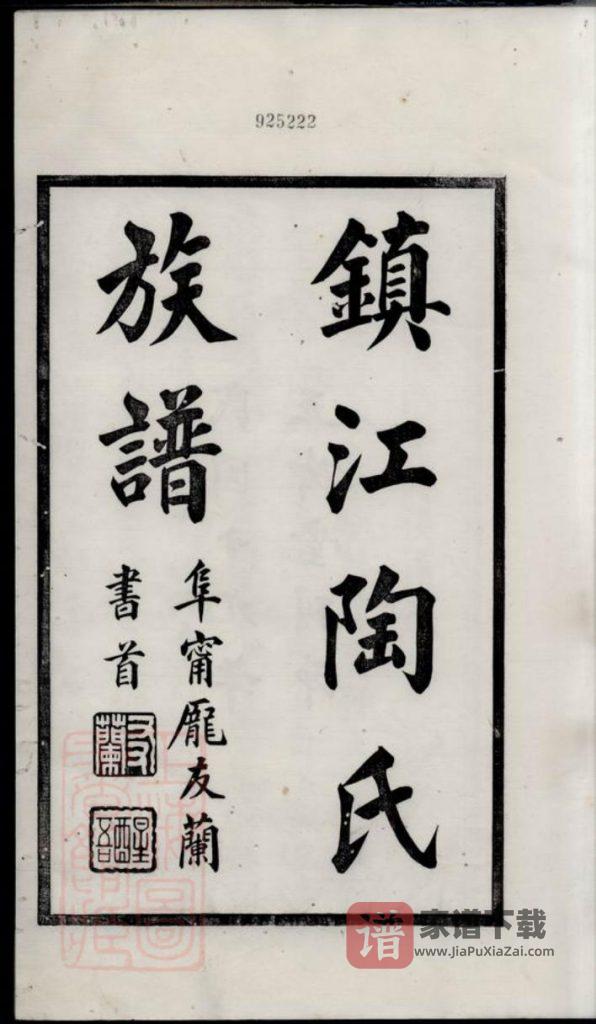 925222
鎮江陶氏
族譜
阜甯龎友蘭
書首
友蘭
醒吾
谱
家谱下载
www.JiaPuXiaZai.com